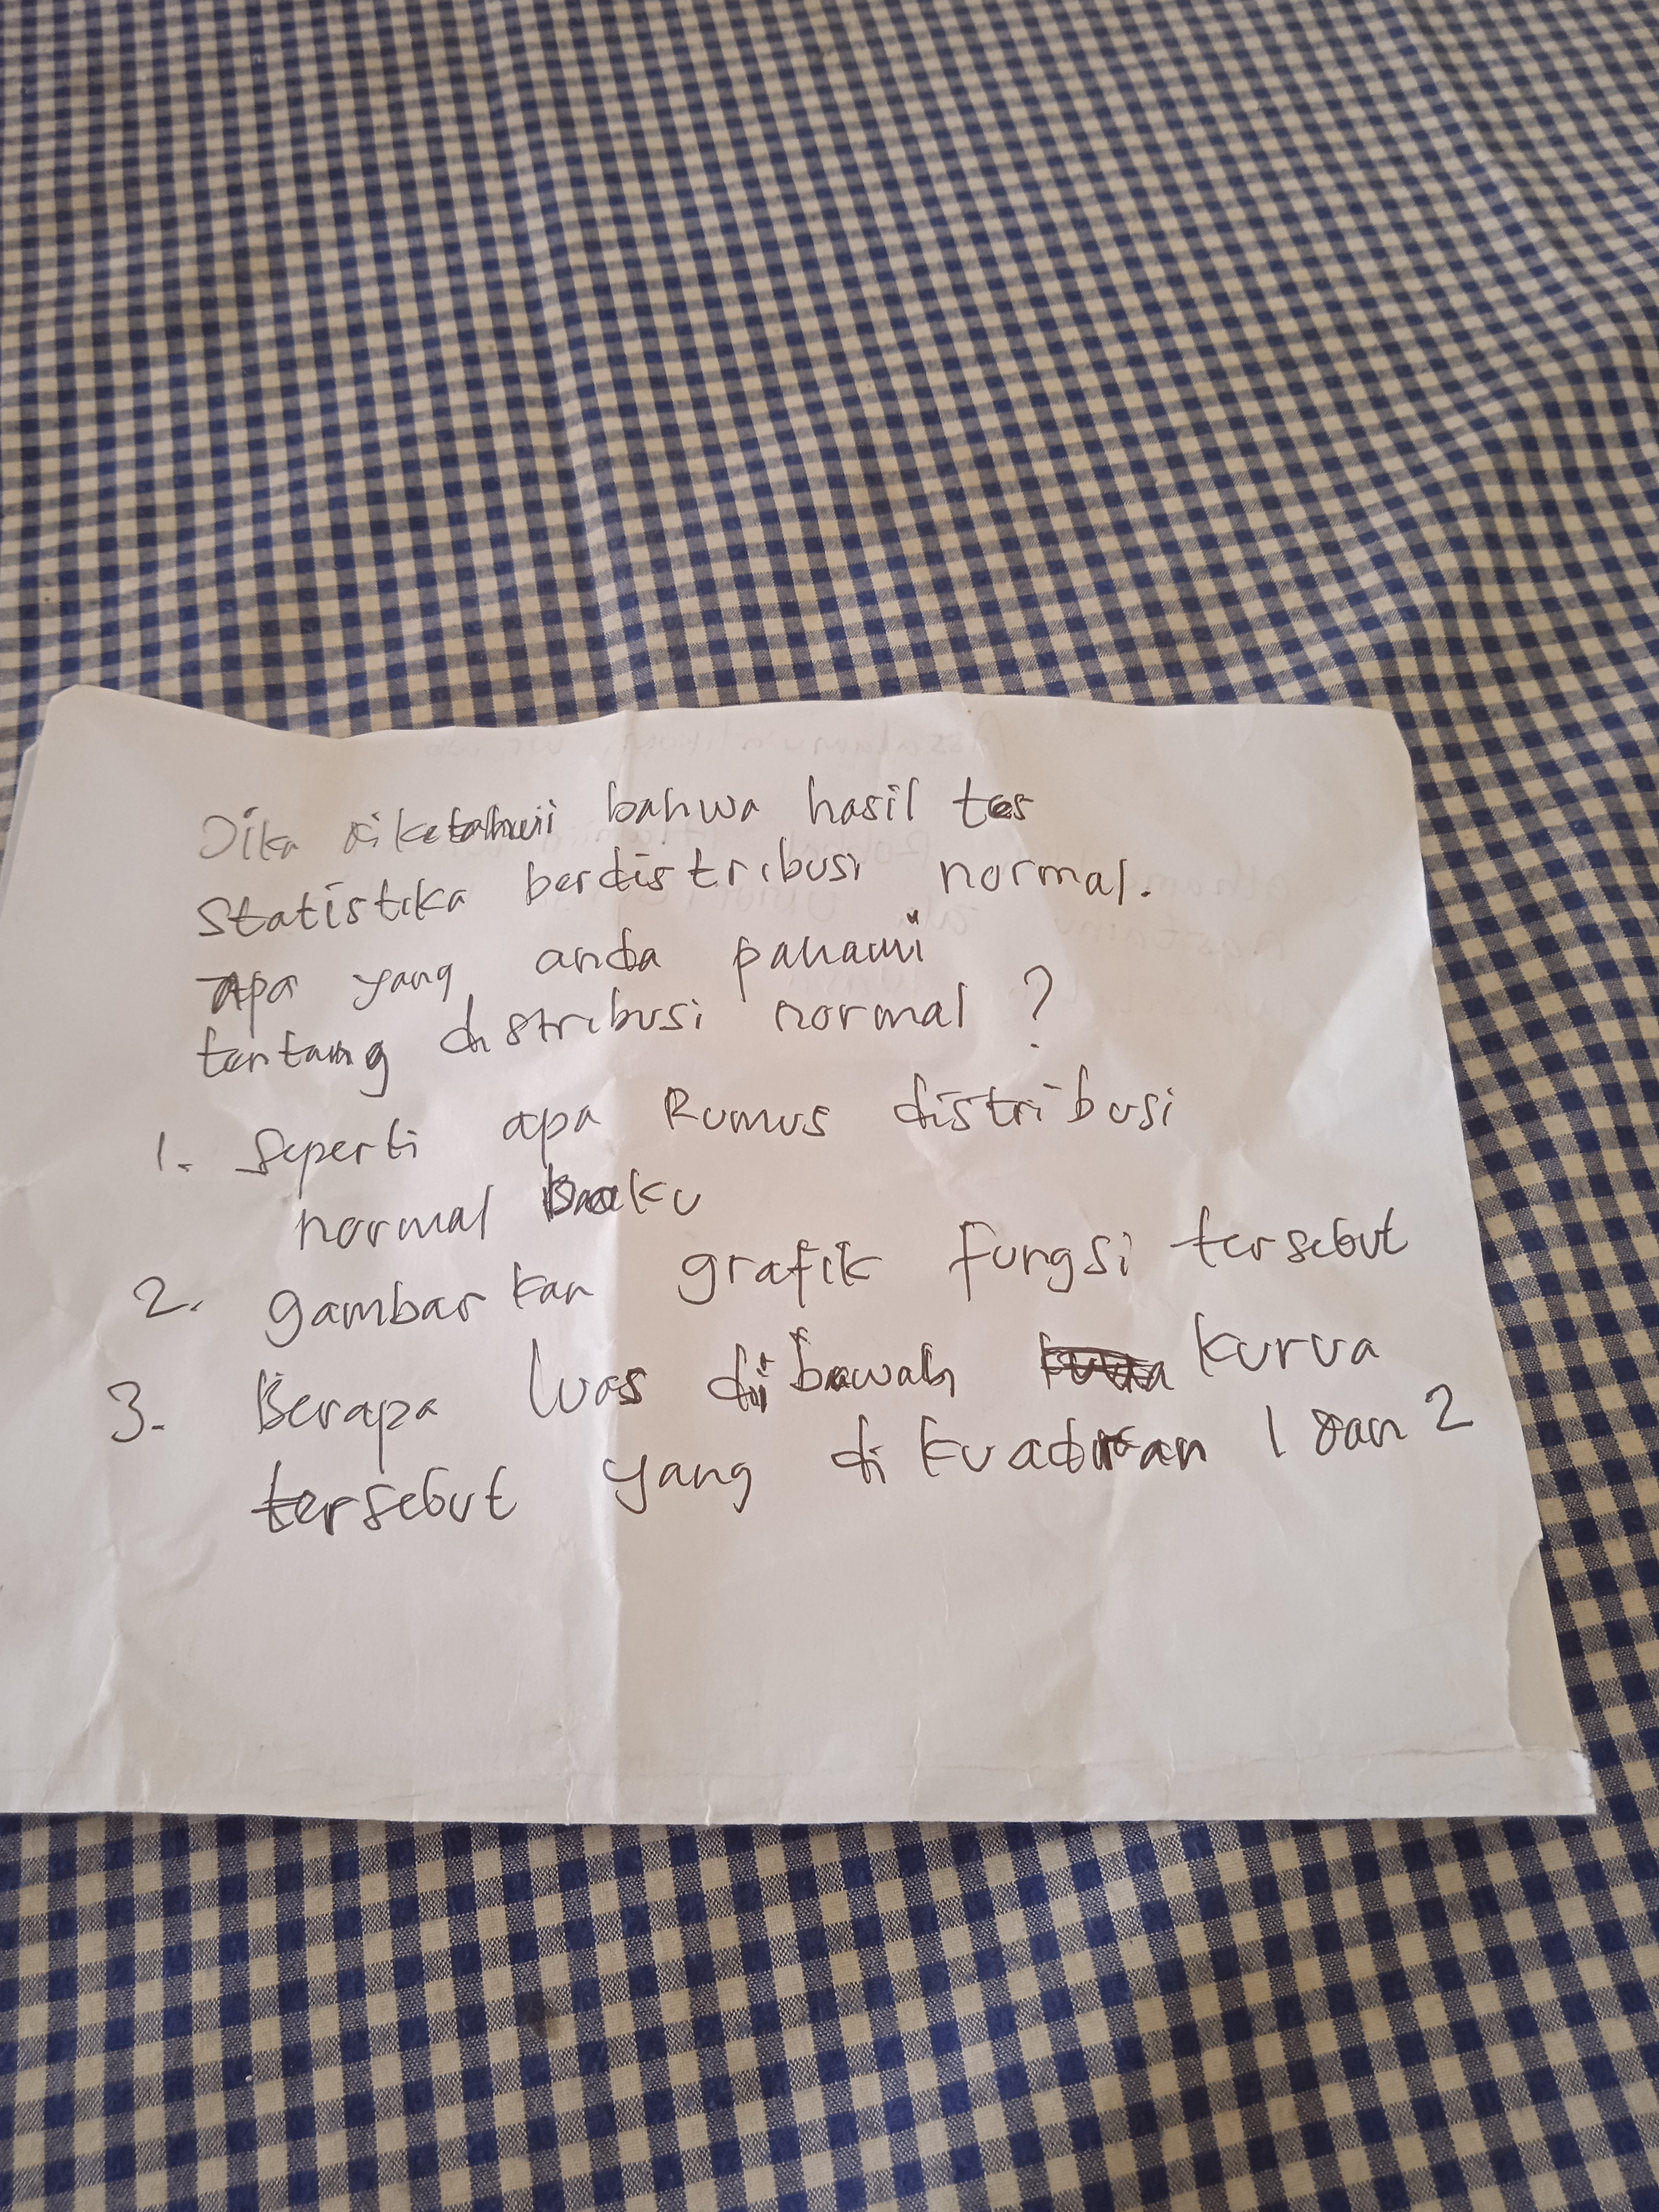 Jika diketahui bahwa hasil tes
Statistika berdistribusi normal.
Apa yang anda pahami
tentang distribusi normal ?
1. Seperti apa Rumus distribusi
normal baku
2. gambarkan grafik fungsi tersebut
3. Berapa luas dibawah kurva
tersebut yang di kuadran 1 dan 2